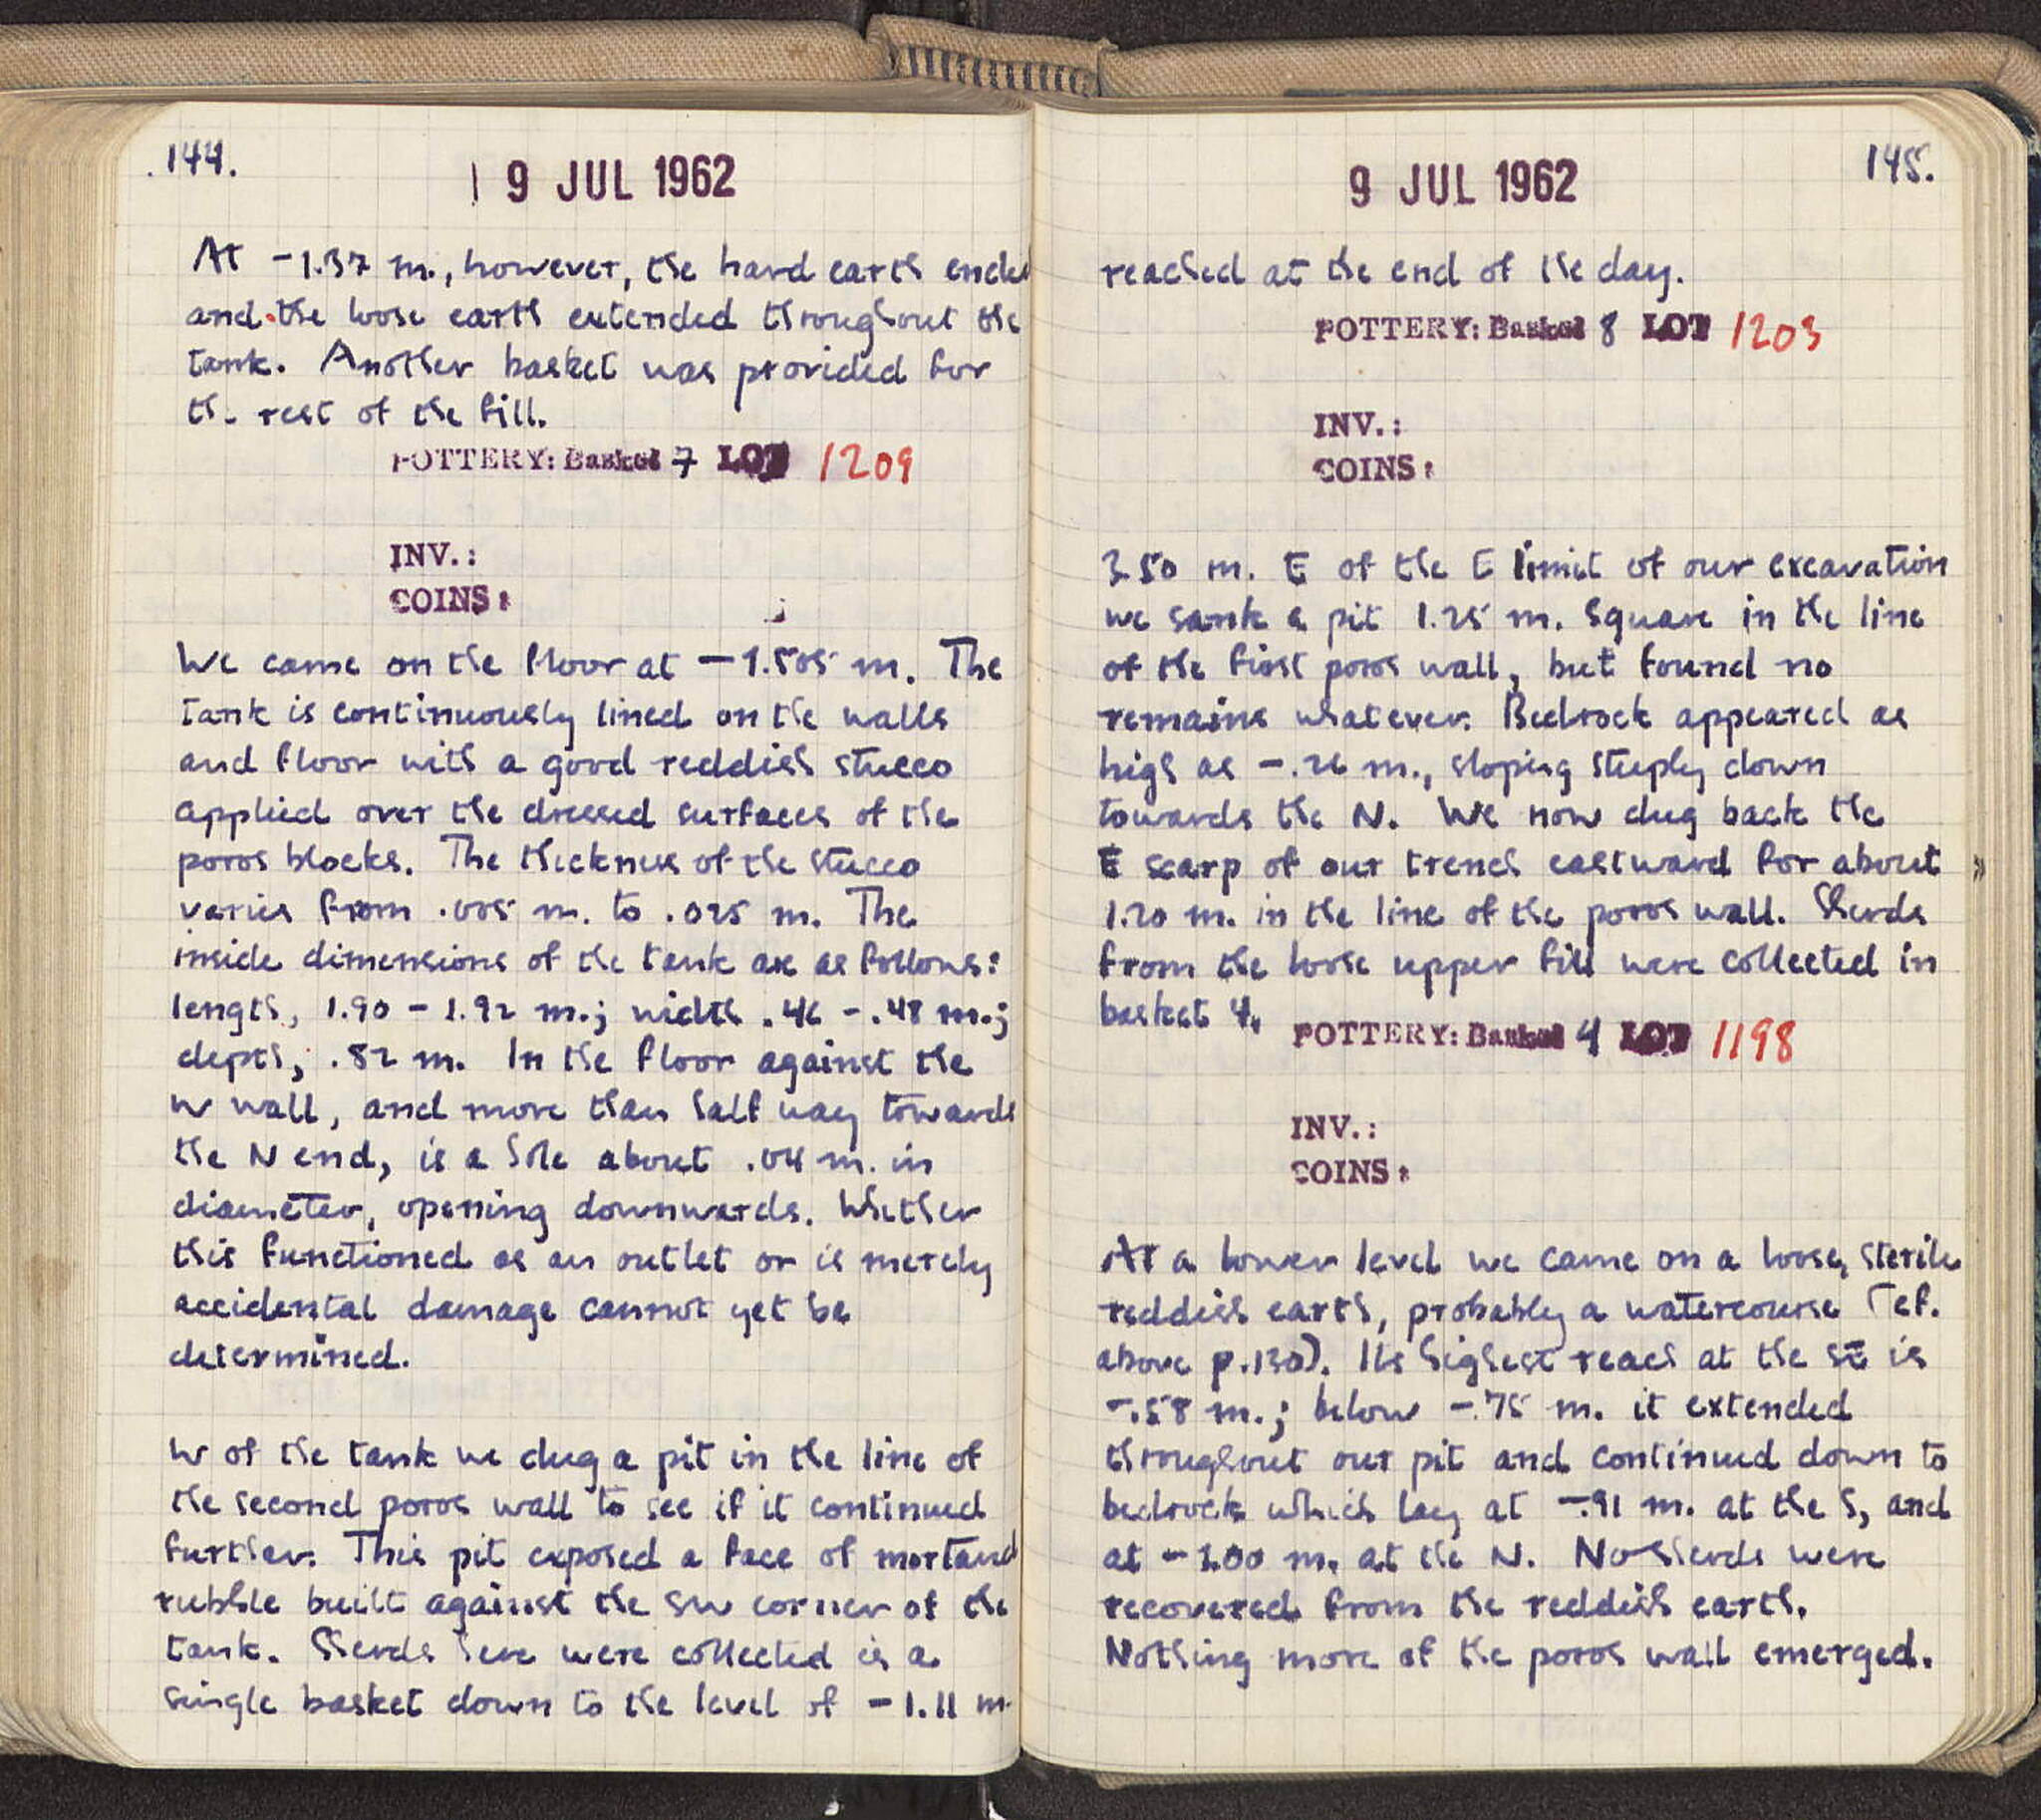 144.
9 JUL 1962
At -1.37 m., however, the hard earth ended
and the loose earth extended throughout the
tank. Another basket was provided for
the rest of the fill.
POTTERY: Basket 7 LOT 1209
INV.:
COINS:
We came on the floor at -1.505 m. The
tank is continuously lined on the walls
and floor with a good reddish stucco
applied over the dressed surfaces of the
poros blocks. The thickness of the stucco
varies from .005 m. to .025 m. The
inside dimensions of the tank are as follows:
length, 1.90 - 1.92 m.; width .46 - .48 m.;
depth, .82 m. In the floor against the
W wall, and more than half way towards
the N end, is a hole about .04 m. in
diameter, opening downwards. Whether
this functioned as an outlet or is merely
accidental damage cannot yet be
determined.
W of the tank we dug a pit in the line of
the second poros wall to see if it continued
further. This pit exposed a face of mortared
rubble built against the SW corner of the
tank. Sherds here were collected is a
single basket down to the level of -1.11 m.
145.
9 JUL 1962
reached at the end of the day.
POTTERY: Basket 8 LOT 1203
INV.:
COINS:
3.50 m. E of the E limit of our excavation
we sank a pit 1.25 m. square in the line
of the first poros wall, but found no
remains whatever. Bedrock appeared as
high as -.26 m., sloping steeply down
towards the N. We now dug back the
E scarp of our trench eastward for about
1.20 m. in the line of the poros wall. Sherds
from the loose upper fill were collected in
basket 4.
POTTERY: Basket 4 LOT 1198
INV.:
COINS:
At a lower level we came on a loose, sterile
reddish earth, probably a watercourse (cf.
above p.130). Its highest reach at the SE is
-.58 m.; below -.75 m. it extended
throughout our pit and continued down to
bedrock which lay at -.91 m. at the S, and
at -1.00 m. at the N. No sherds were
recovered from the reddish earth.
Nothing more of the poros wall emerged.